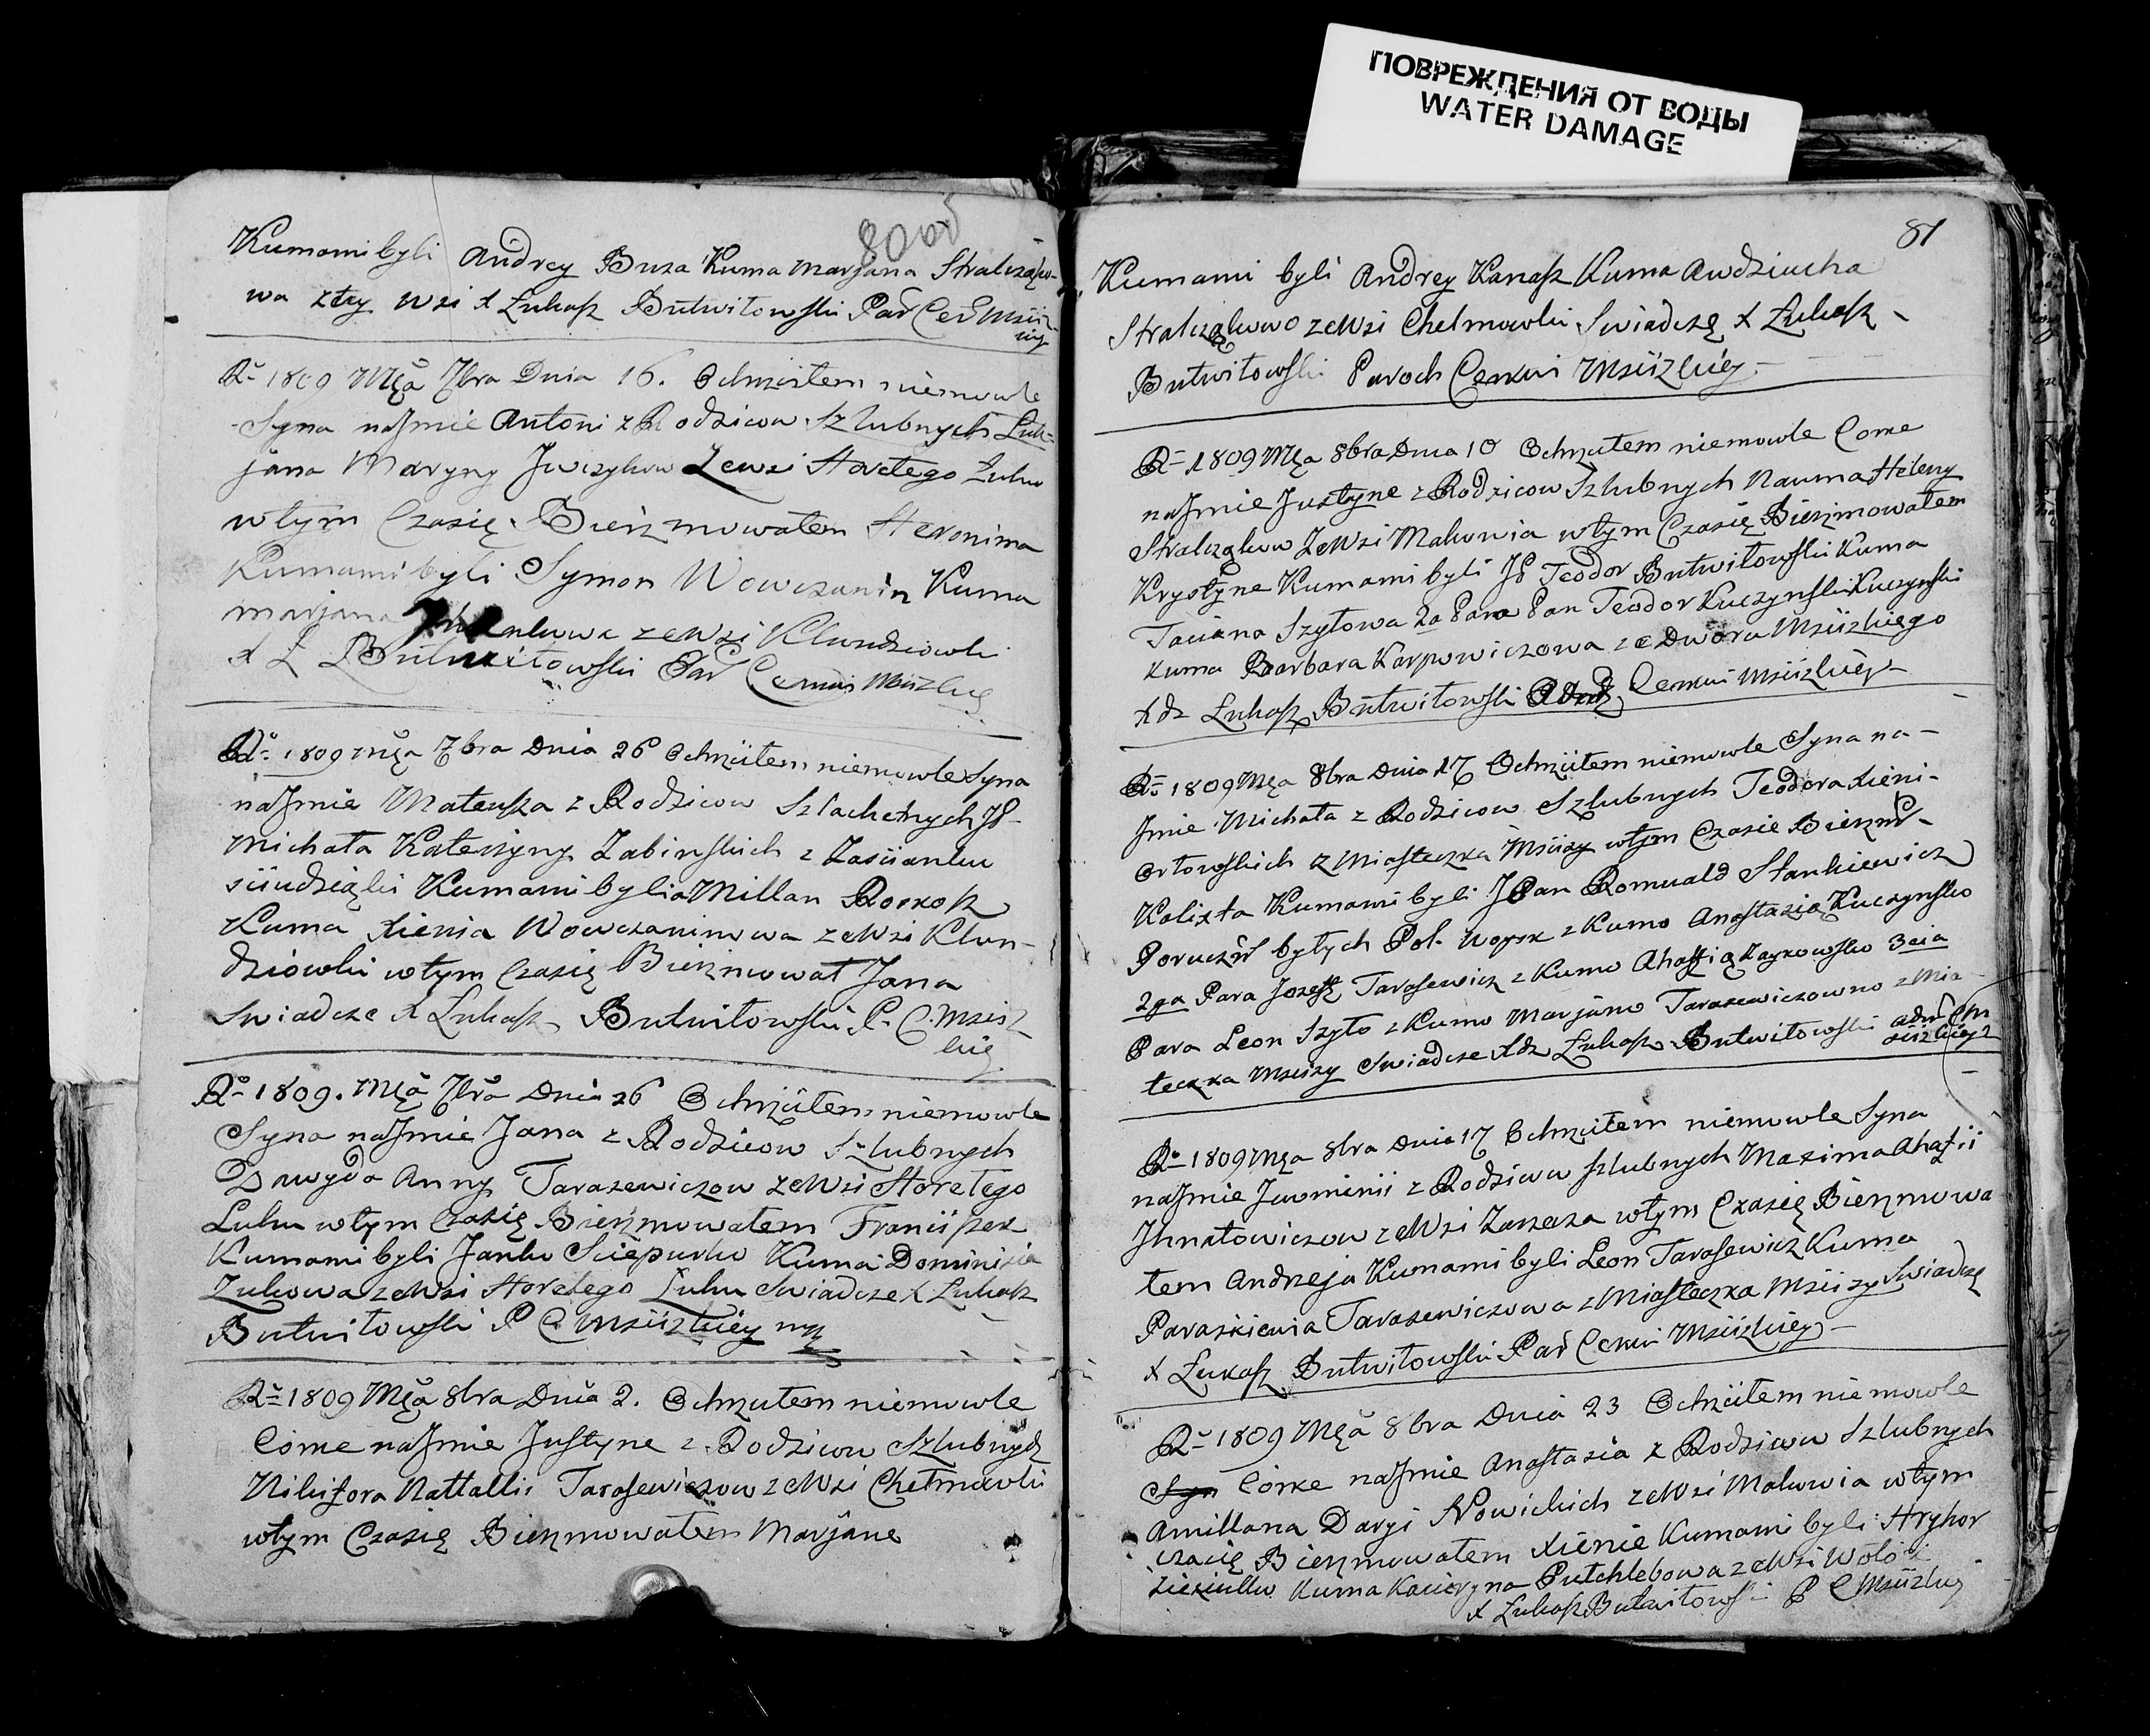 ПОВРЕЖДЕНИЯ ОТ ВОДЫ
WATER DAMAGE
Kumami byli Andrey Buza Kuma Marjana
wa z tey wsi X Łukasz Butwiłowski Par Cer
Rº 1809 Mca 7bra Dnia 16. Ochrzciłem niemowle
Syna na Jmie Antoni z Rodzicow Szlubnych Łuk=
jana Maryny Jwczykow Zewsi Horełego Łuhu
wtym Czasie Bierzmowałem Heronima
Kumami byli Symon Wowczanin Kuma
marjana zeWsi Klundziowki
X Ł Butwiłowski Par Cerkwi
Rº 1809 Mca 7bra Dnia 26 Ochrzciłem niemowle Syna
naJmie Mateusza z Rodzicow Szlachetnych JP
Michała Kateryny Zabinskich z Zascianku
Kumami byli aMillan
Kuma Xienia Wowczaninowa zeWsi Klun-
dziowki wtym Czasie Bierzmował Jana
Swiadcze X Łukasz Butwiłowski P. C. Mscisz
kiey
Rº 1809. Mca 7bra Dnia 26 Ochrzciłem niemowle
Syna naJmie Jana z Rodzicow Szlubnych
Dawyda Anny Tarasewiczow zeWsi Horełego
Luhu wtym Czasie Bierzmowałem Franciszek
Kumami byli Janko Sciepurko Kuma Dominicia
Zukowa zeWsi Horełego Łuhu Swiadcze X Łukasz
Butwiłowski P C Mscizkiey
Rº 1809 Mca 8bra Dnia 2. Ochrzciłem niemowle
Corke naJmie Justyne z Rodzicow Szlubnych
Nikifora Nattallii Tarasewiczow zeWsi Chełmowki
wtym Czasie Bierzmowałem Marjane
81
Kumami byli Andrey Kanasz Kuma Awdziucha
Stralczakowo zeWsi Chelmowki Swiadczę X Łukasz
Butwiłowski Paroch Cerkwi Mscizkiey
Rº 1809 Mca 8bra Dnia 10 Ochrzciłem niemowle Corke
naJmie Justyne z Rodzicow Szlubnych Nauma Heleny
Stralczakow ZeWsi Makowia wtym Czasie Bierzmowałem
Krystyne Kumami byli JP Teodor Butwiłowski Kuma
Taciana Szyłowa 2a Para Pan Teodor Kuczynski Kuczynski
Kuma Barbara Karpowiczowa ze Dwora Mscizkiego
Xdz Łukasz Butwiłowski Cerkwi Mscizkiey
Rº 1809 Mca 8bra Dnia 17 Ochrzciłem niemowle Syna na-
Jmie Michała z Rodzicow Szlubnych Teodora Xieni-
Orłowskich z Miasteczka Mscizy wtym Czasie Bierzmº
Kalixta Kumami byli JPan Romuald Stankiewicz
Porucznº byłych Pol. woysk z Kumo Anastazia Kuczynsko
2ga Para Jozeff Tarasewicz z Kumo Ahafią 3cia
Para Leon Szyło z Kumo Marjano Tarasewiczowno z Mia
teczka Mscizy Swiadcze Xdz Łukasz Butwiłowski
Rº 1809 Mca 8bra Dnia 17 Ochrzciłem niemowle Syna
naJmie z Rodzicow szlubnych Maxima Ahafii
Jhnatowiczow zeWsi Zarzecza wtym Czasie Bierzmowa
łem Andrzeja Kumami byli Leon Tarasewicz Kuma
Paraskiewia Tarasewiczowa z Miasteczka Mscizy Swiadczę
X Łukasz Butwiłowski Par Cerkwi Mscizkiey
Rº 1809 Mca 8bra Dnia 23 Ochrzciłem niemowle
Corke naJmie Anastazia z Rodzicow Szlubnych
Amillana Daryi Nowickich zeWsi Makowia wtym
czasie Bierzmowałem Xienie Kumami byli Hryhor
Kuma Kacieryna Putchlebowa zeWsi
X Łukasz Butwiłowski P C Mscizkiey